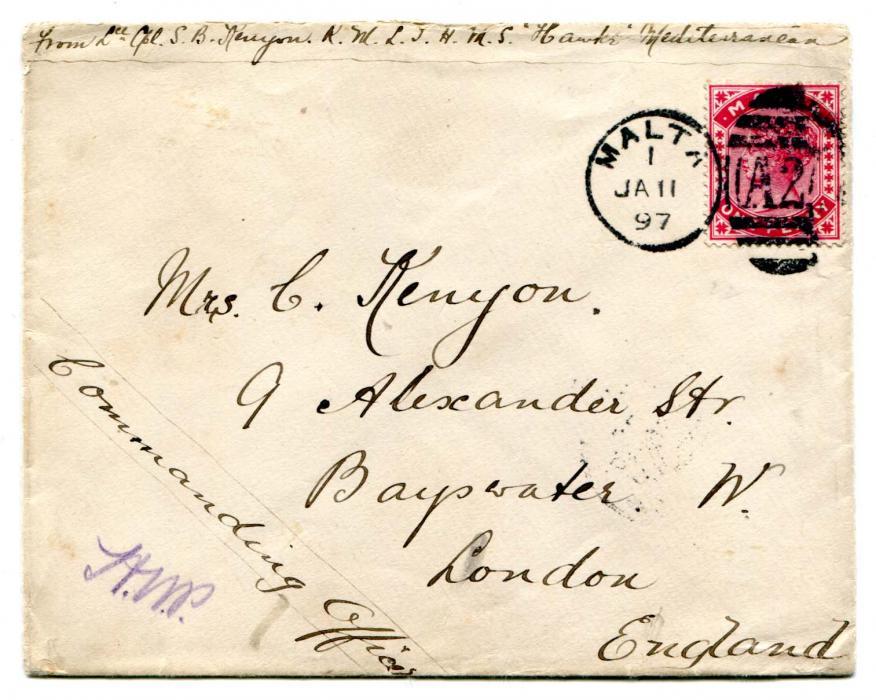 From Lce Cpl. S. B. Kenyon. R. M. L. I. H. M. S. "Hawke" Mediterranean
MALTA
1
JA 11
97
A2
Mrs. C. Kenyon.
9 Alexander Str.
Bayswater. W.
London
England
Commanding Officer